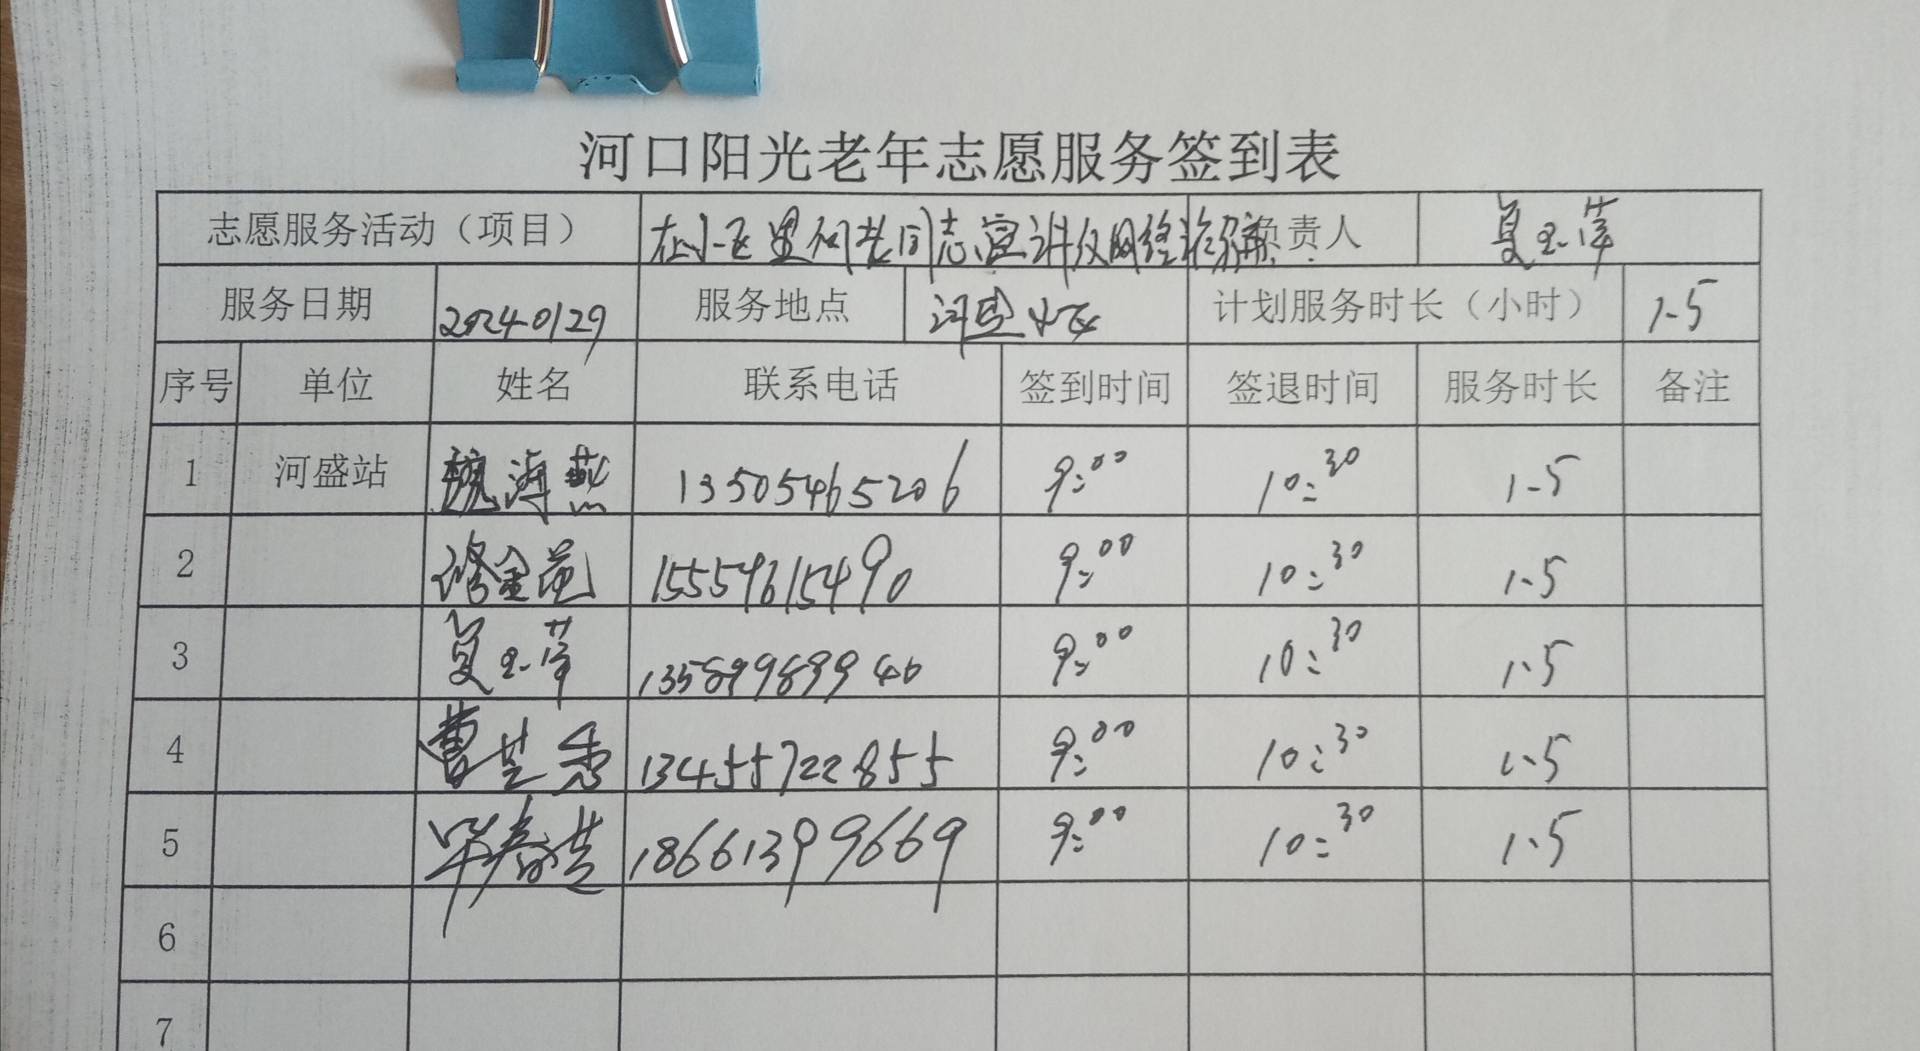 河口阳光老年志愿服务签到表
志愿服务活动（项目） 在小区里向老同志宣讲反网络诈骗 负责人
服务日期 20240129 服务地点 河盛小区 计划服务时长（小时） 1.5
序号 单位 姓名 联系电话 签到时间 签退时间 服务时长 备注
1 河盛站 魏海燕 13505465206 9:00 10:30 1.5
2 15554615490 9:00 10:30 1.5
3 13589989940 9:00 10:30 1.5
4 曹芝秀 13455722855 9:00 10:30 1.5
5 18661399669 9:00 10:30 1.5
6
7